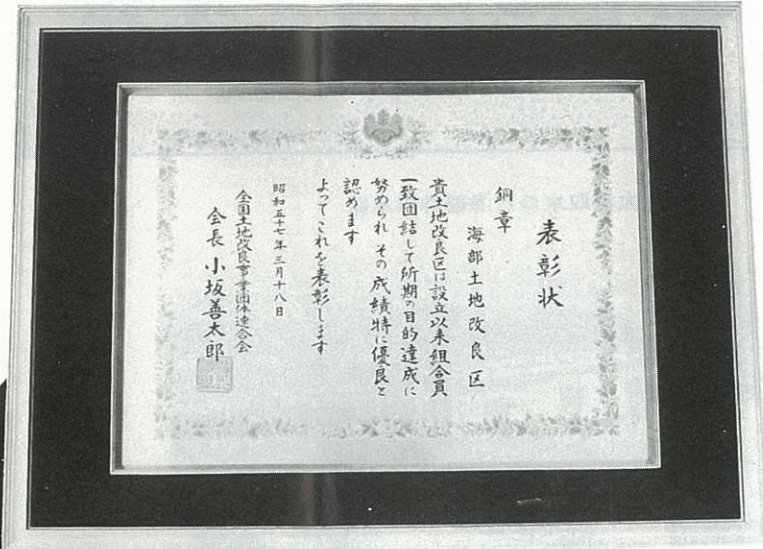 表彰状
銅章
海部土地改良区
貴土地改良区は設立以来組合員
一致団結して所期の目的達成に
努められ その成績特に優良と
認めます
よってこれを表彰します
昭和五十七年三月十八日
全国土地改良事業団体連合会
会長 小坂善太郎